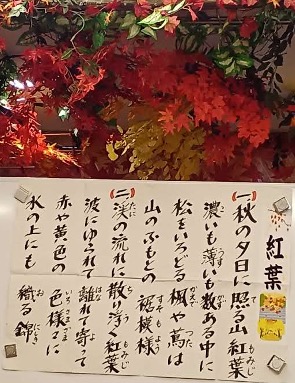 紅葉
(一)秋の夕日に照る山紅葉
濃いも薄いも数ある中に
松をいろどる楓や蔦は
山のふもとの裾模様
(二)渓の流れに散り浮く紅葉
波にゆられて離れて寄って
赤や黄色の色様々に
水の上にも織る錦